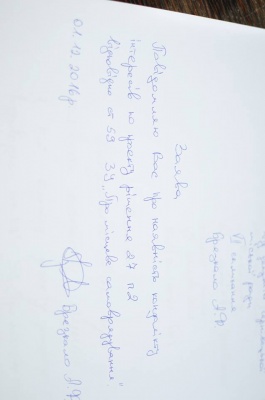 міської ради
VII скликання
Заява
Повідомляю Вас про наявність конфлікту
інтересів по проекту рішення 27 п2
відповідно ст 59 ЗУ „Про місцеве самоврядування"
01.12.2016р.